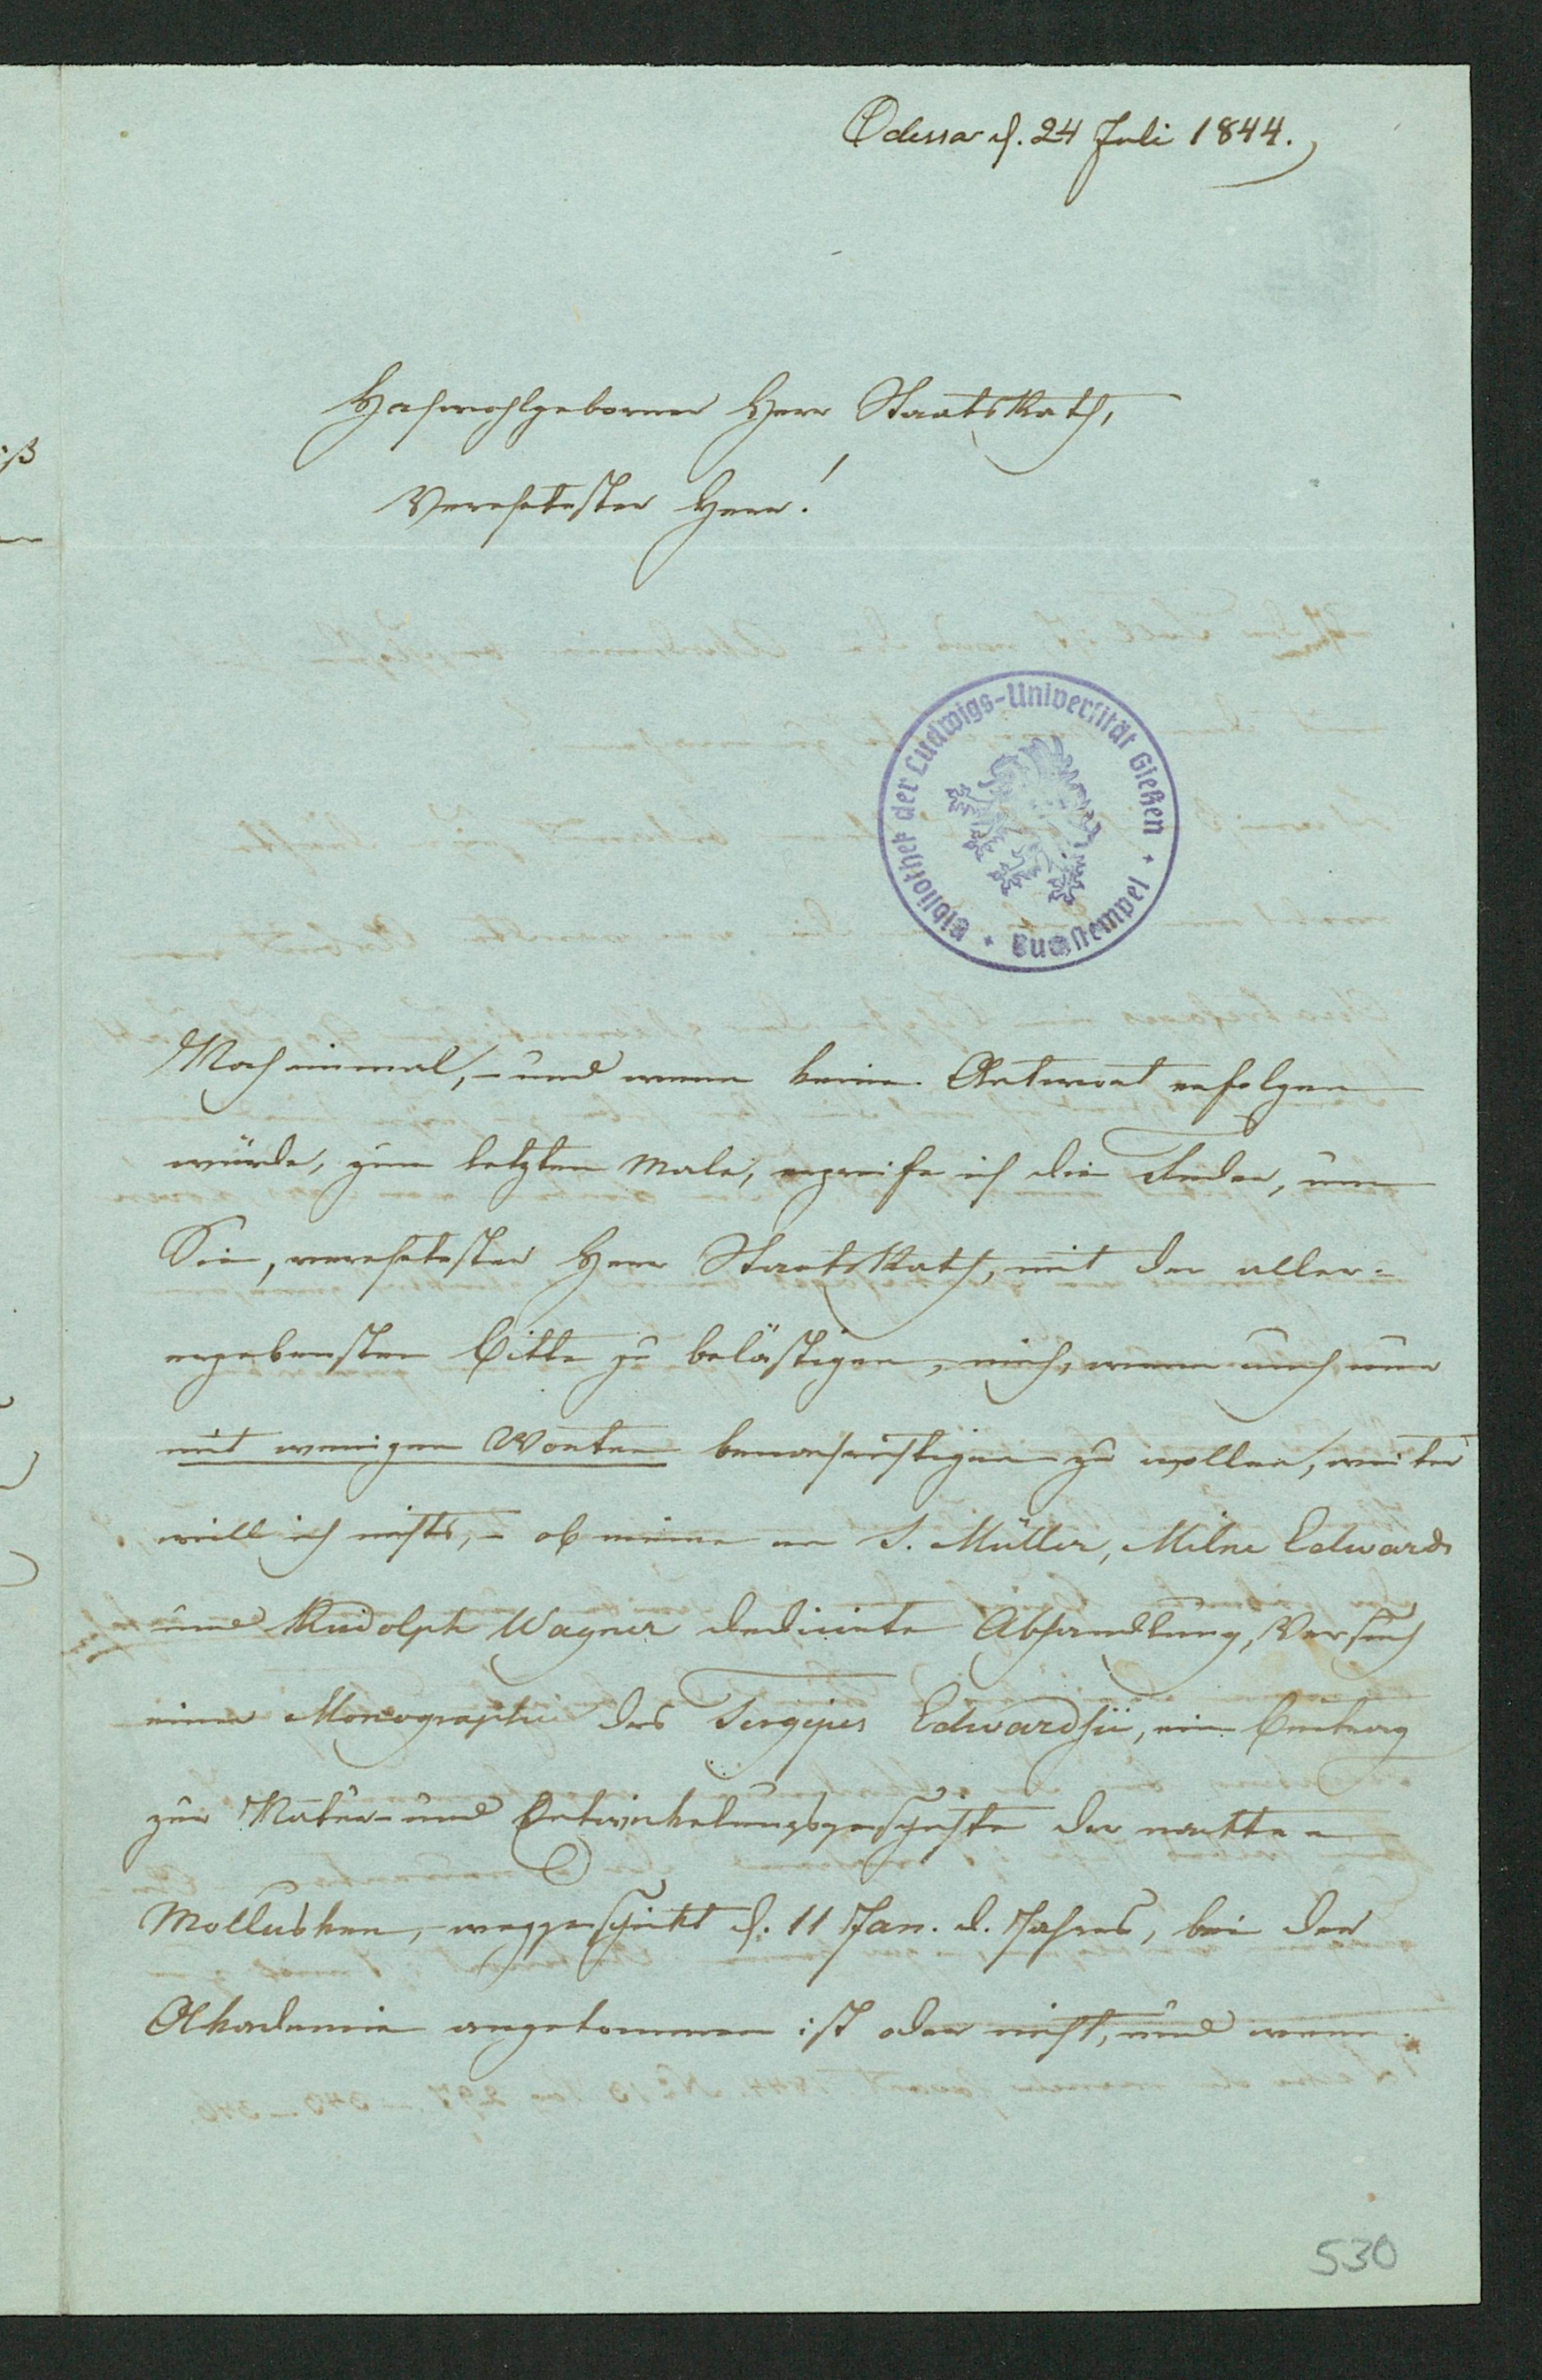 Odessa d. 24 Juli 1844.
Hochwohlgeborner Herr StaatsRath,
Verehrtester Herr!
Bibliothek der Ludwigs-Universität Gießen
Buchstempel
Noch einmal, – und wenn keine Antwort erfolgen
würde, zum letzten Male, ergreife ich die Feder, um
Sie, verehrtester Herr StaatsRath, mit der aller-
ergebensten Bitte zu belästigen, mich, wenn auch nur
mit wenigen Worten benachrichtigen zu wollen, weiter
will ich nichts, – ob meine an J. Müller, Milne Edwards
und Rudolph Wagner dedicirte Abhandlung, Versuch
einer Monographie des Tergipes Edwardsii, ein Beitrag
zur Natur- und Entwickelungsgeschichte der nackten
Mollusken, weggeschickt d. 11 Jan. d. Jahres, bei der
Akademie angekommen ist oder nicht, und wenn
530